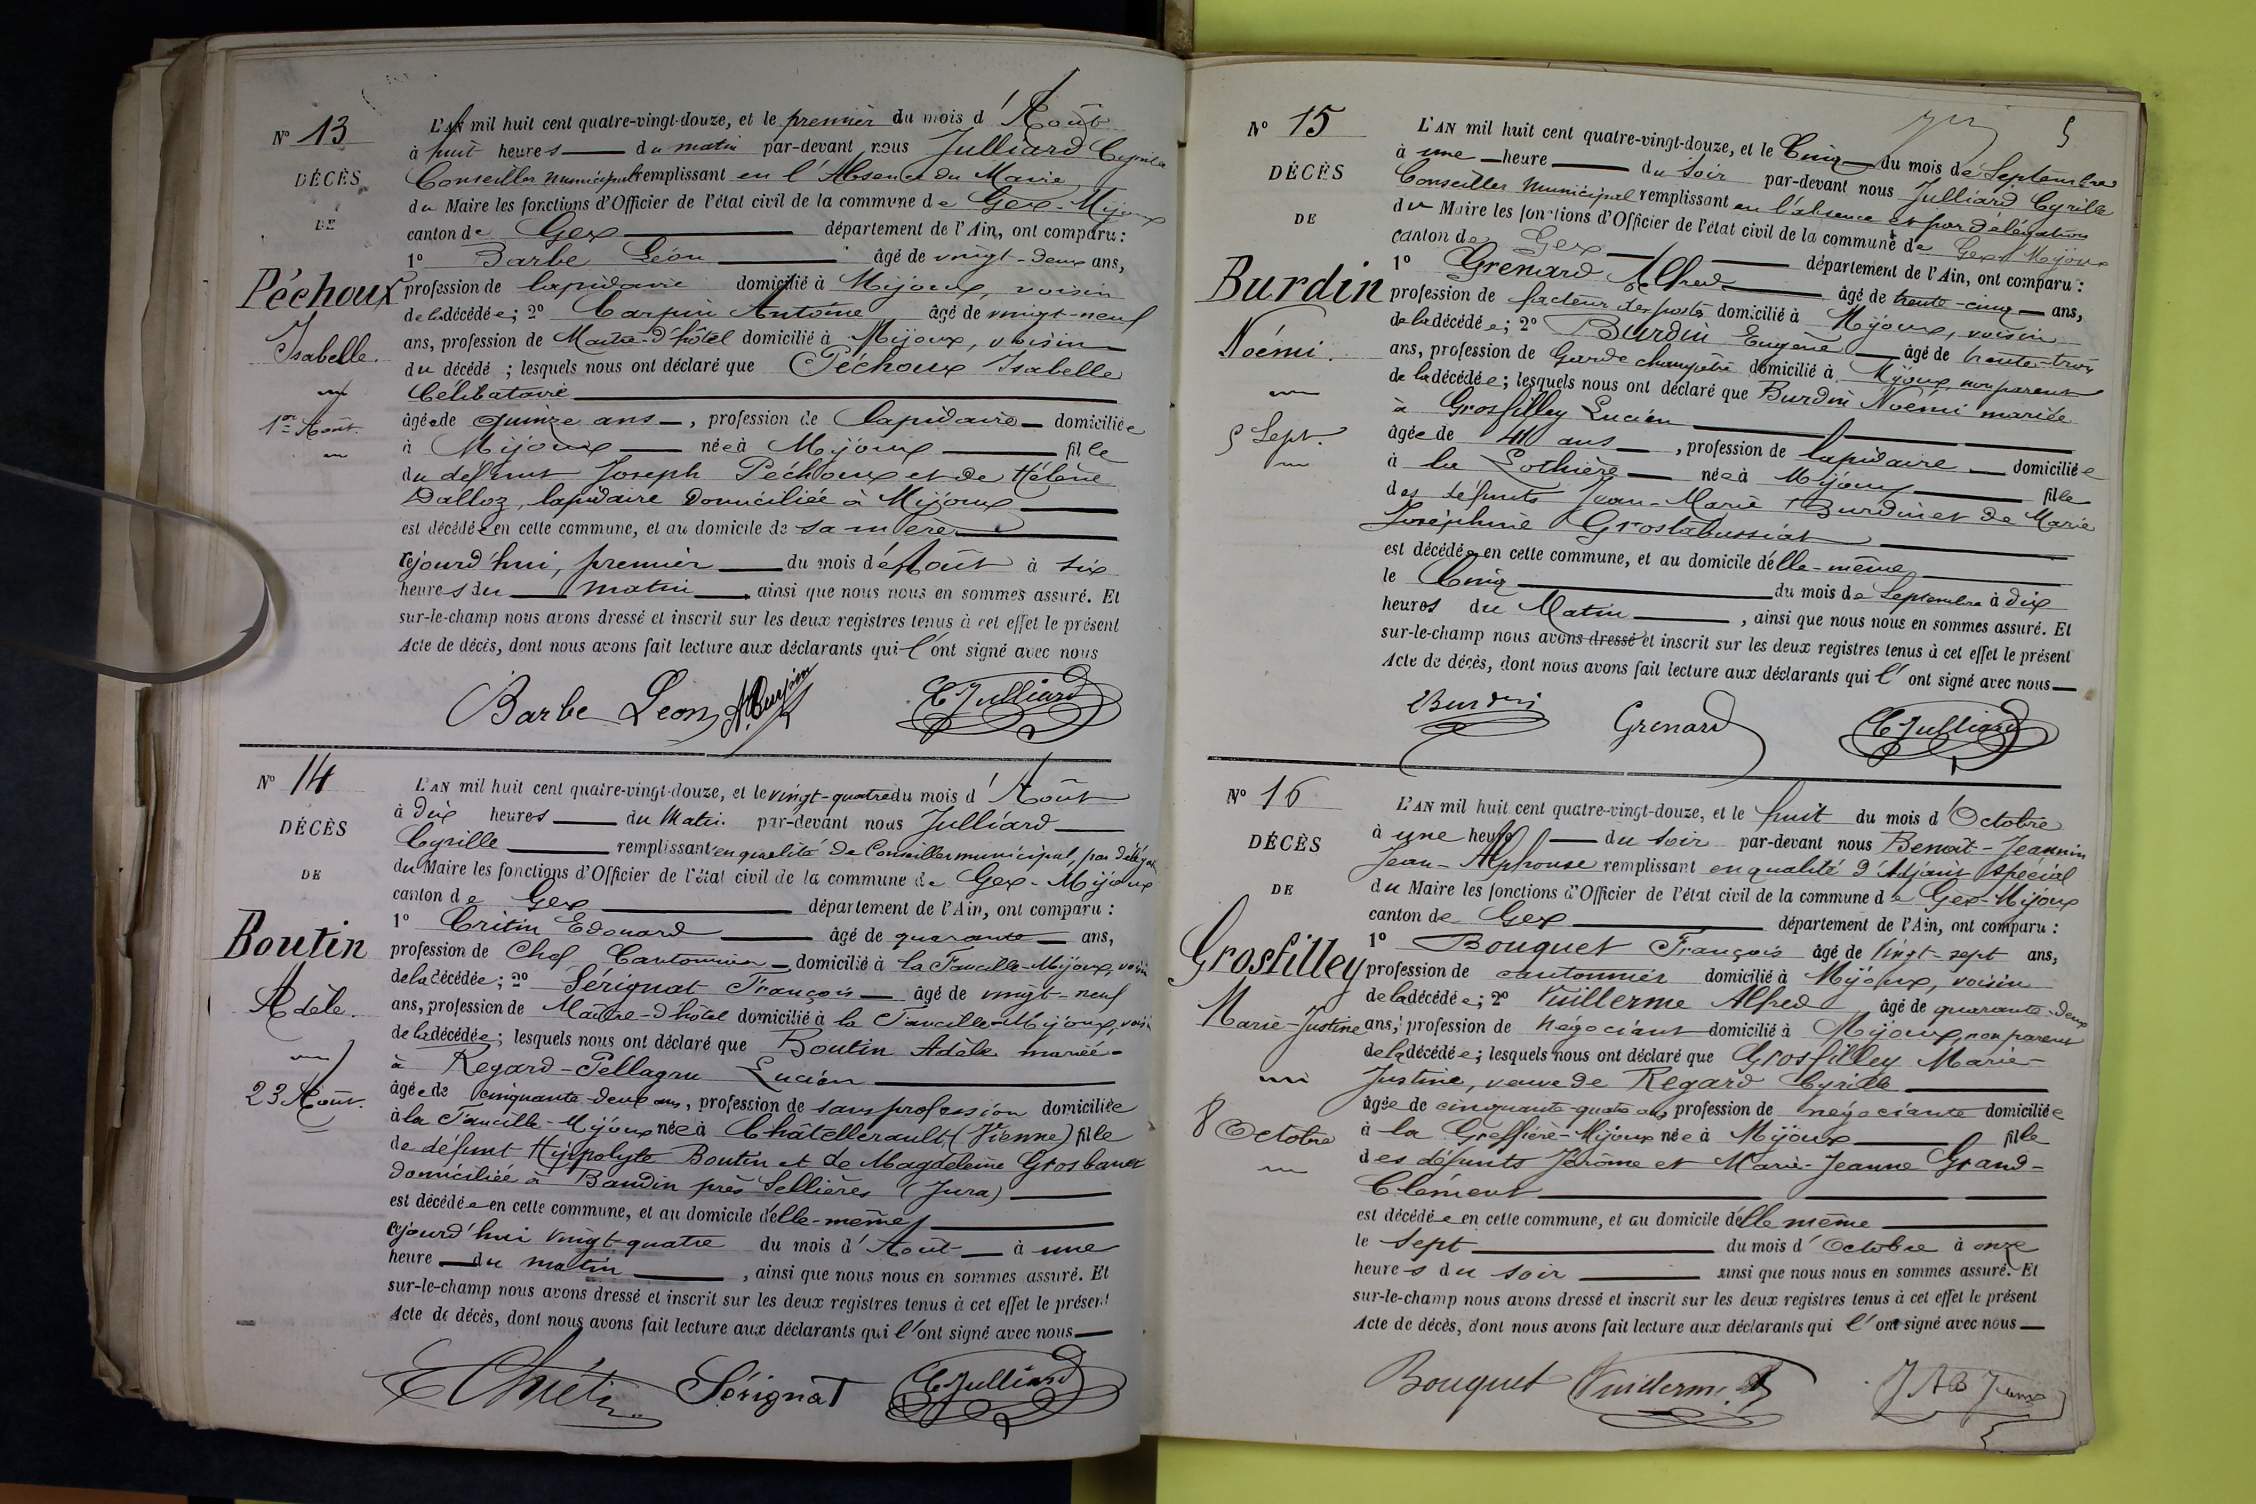 N° 13
DÉCÈS
DE
Péchoux
Isabelle.
1er Août.
L'AN mil huit cent quatre-vingt-douze, et le premier du mois d'Août
à huit heures du matin par-devant nous Julliard Cyrille
Conseiller municipal remplissant en l'Absence du Maire
du Maire les fonctions d'Officier de l'état civil de la commune de Gex-Mijoux
canton de Gex département de l'Ain, ont comparu :
1° Barbe Léon âgé de vingt-deux ans,
profession de lapidaire domicilié à Mijoux, voisin
de la décédée; 2° Carpin Antoine âgé de vingt-neuf
ans, profession de Maître-d'hôtel domicilié à Mijoux, voisin
du décédé ; lesquels nous ont déclaré que Péchoux Isabelle
Célibataire
âgée de quinze ans, profession de lapidaire domiciliée
à Mijoux née à Mijoux fille
du défunt Joseph Péchoux et de Hélène
Dalloz, lapidaire domiciliée à Mijoux
est décédée en cette commune, et au domicile de sa mère
cejourd'hui, premier du mois d'Août à six
heures du matin ainsi que nous nous en sommes assuré. Et
sur-le-champ nous avons dressé et inscrit sur les deux registres tenus à cet effet le présent
Acte de décès, dont nous avons fait lecture aux déclarants qui l'ont signé avec nous
Barbe Léon A. Carpin C. Julliard
N° 14
DÉCÈS
DE
Boutin
Adèle.
23 Août.
L'AN mil huit cent quatre-vingt-douze, et le vingt-quatre du mois d'Août
à dix heures du Matin par-devant nous Julliard
Cyrille remplissant en qualité de Conseiller municipal, par délégation
du Maire les fonctions d'Officier de l'état civil de la commune de Gex-Mijoux
canton de Gex département de l'Ain, ont comparu :
1° Critin Edouard âgé de quarante ans,
profession de Chef Cantonnier domicilié à la Faucille-Mijoux, voisin
de la décédée; 2° Sérignat François âgé de vingt-neuf
ans, profession de Maître-d'hôtel domicilié à la Faucille-Mijoux, voisin
de la décédée; lesquels nous ont déclaré que Boutin Adèle mariée
à Regard-Pellagru Lucien
âgée de cinquante-deux ans, profession de sans profession domiciliée
à la Faucille-Mijoux née à Châtellerault (Vienne) fille
de défunt Hippolyte Boutin et de Magdeleine Grosbanet
domiciliée à Baudin près Sellières (Jura)
est décédée en cette commune, et au domicile d'elle-même
cejourd'hui vingt-quatre du mois d'Août à une
heure du matin, ainsi que nous nous en sommes assuré. Et
sur-le-champ nous avons dressé et inscrit sur les deux registres tenus à cet effet le présent
Acte de décès, dont nous avons fait lecture aux déclarants qui l'ont signé avec nous
Sérignat C. Julliard
5
N° 15
DÉCÈS
DE
Burdin
Noémi.
5 Sept.
L'AN mil huit cent quatre-vingt-douze, et le Cinq du mois de Septembre
à une heure du soir par-devant nous Julliard Cyrille
Conseiller municipal remplissant en l'absence et par délégation
du Maire les fonctions d'Officier de l'état civil de la commune de Gex Mijoux
canton de Gex département de l'Ain, ont comparu :
1° Grenard Alfred âgé de trente-cinq ans,
profession de facteur des postes domicilié à Mijoux, voisin
de la décédée; 2° Burdin Eugène âgé de trente-trois
ans, profession de Garde champêtre domicilié à Mijoux, non parent
de la décédée; lesquels nous ont déclaré que Burdin Noémi mariée
à Grosfilley Lucien
âgée de 41 ans, profession de lapidaire domiciliée
à la Lothière née à Mijoux fille
des défunts Jean-Marie Burdin et de Marie
Joséphine Groslabussiat
est décédée en cette commune, et au domicile d'elle-même
le Cinq du mois de Septembre à dix
heures du Matin, ainsi que nous nous en sommes assuré. Et
sur-le-champ nous avons dressé et inscrit sur les deux registres tenus à cet effet le présent
Acte de décès, dont nous avons fait lecture aux déclarants qui l'ont signé avec nous
Burdin Grenard C. Julliard
N° 16
DÉCÈS
DE
Grosfilley
Marie-Justine
8 Octobre
L'AN mil huit cent quatre-vingt-douze, et le huit du mois d'Octobre
à une heure du soir par-devant nous Benoît-Jeannin
Jean-Alphonse remplissant en qualité d'Adjoint spécial
du Maire les fonctions d'Officier de l'état civil de la commune de Gex-Mijoux
canton de Gex département de l'Ain, ont comparu :
1° Bouquet François âgé de vingt-sept ans,
profession de cantonnier domicilié à Mijoux, voisin
de la décédée; 2° Vuillerme Alfred âgé de quarante-deux
ans, profession de négociant domicilié à Mijoux, non parent
de la décédée; lesquels nous ont déclaré que Grosfilley Marie-
Justine, veuve de Regard Cyrille
âgée de cinquante-quatre ans, profession de négociante domiciliée
à la Greffière-Mijoux née à Mijoux fille
des défunts Jérôme et Marie-Jeanne Grand-
Clément
est décédée en cette commune, et au domicile d'elle même
le sept du mois d'Octobre à onze
heures du soir ainsi que nous nous en sommes assuré. Et
sur-le-champ nous avons dressé et inscrit sur les deux registres tenus à cet effet le présent
Acte de décès, dont nous avons fait lecture aux déclarants qui l'ont signé avec nous
Bouquet Vuillerme